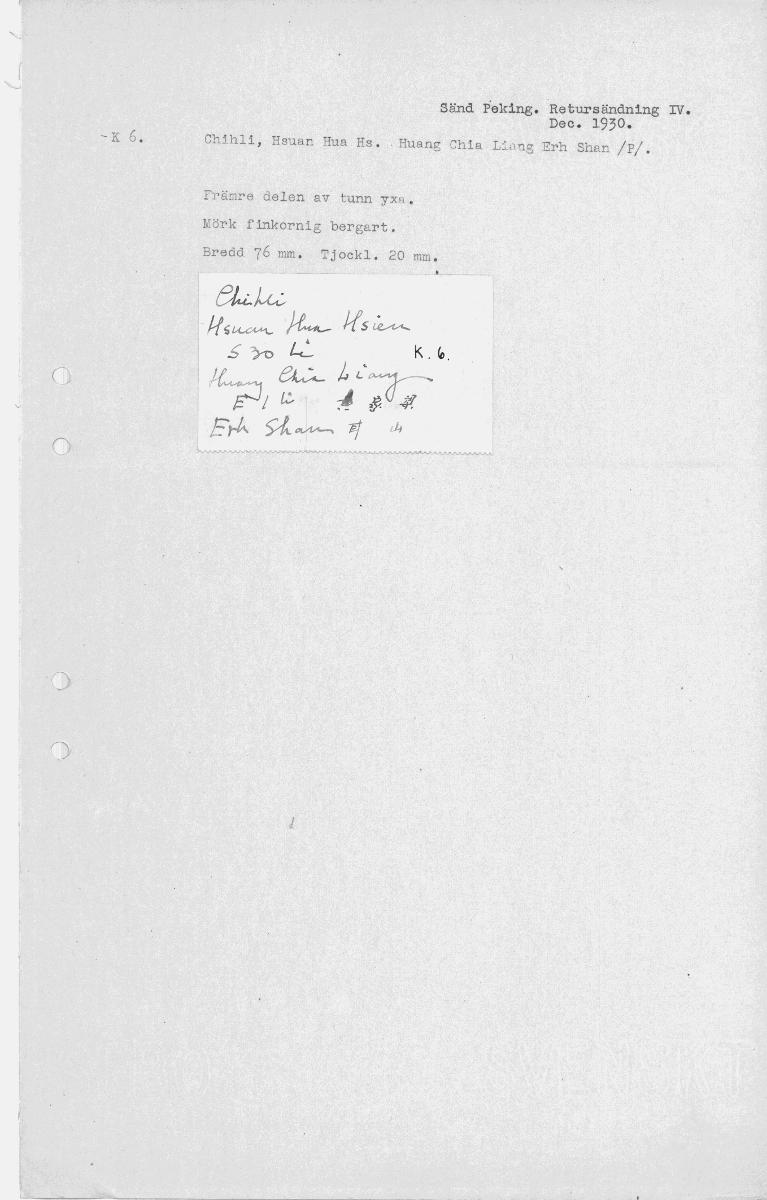 Sänd Peking. Retursändning IV.
Dec. 1930.
-K 6. Chihli, Hsuan Hua Hs. Huang Chia Liang Erh Shan /P/.
Främre delen av tunn yxa.
Mörk finkornig bergart.
Bredd 76 mm. Tjockl. 20 mm.
Chihli
Hsuan Hua Hsien
S 30 Li K.6.
Huang Chia Liang
E 1 li 梁
Erh Shan 山